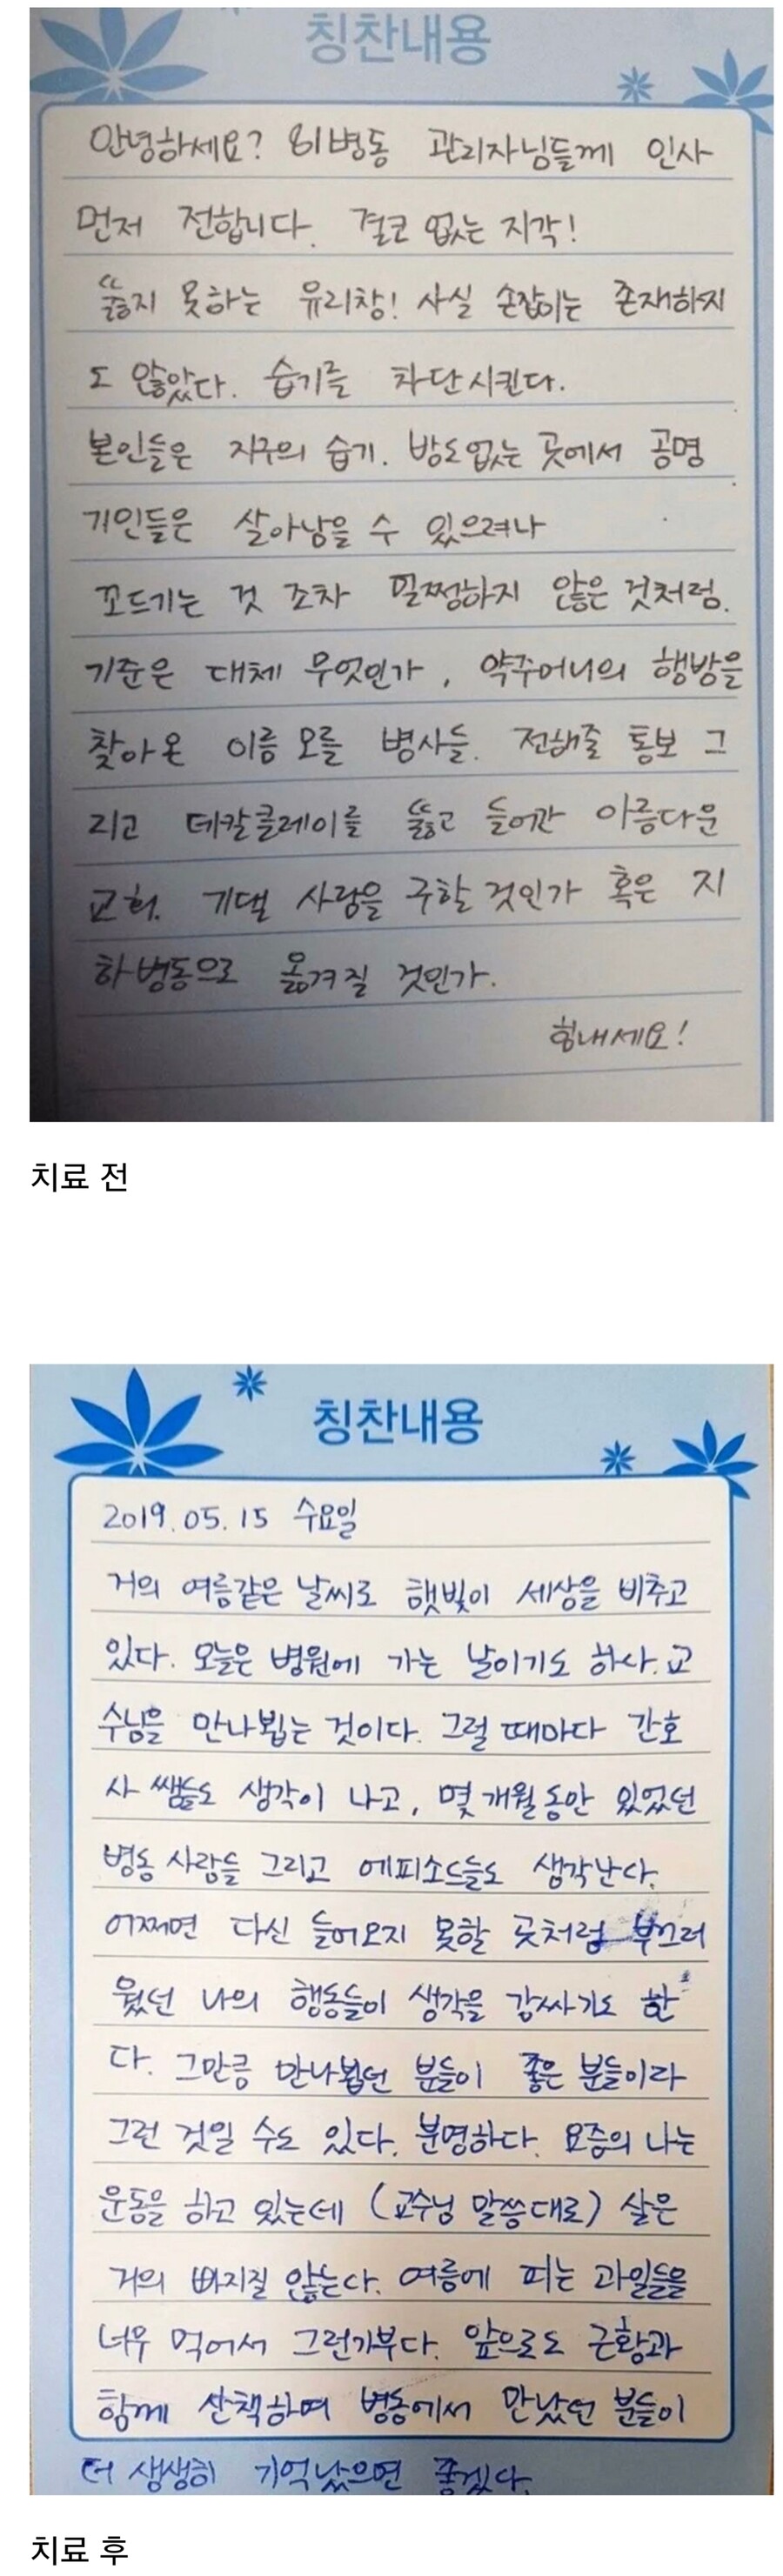 칭찬내용
안녕하세요? 81병동 관리자님들께 인사
먼저 전합니다. 결코 없는 지각!
뚫지 못하는 유리창! 사실 손잡이는 존재하지
도 않았다. 습기를 차단시킨다.
본인들은 지구의 습기. 밤도없는 곳에서 공명
기인들은 살아남을 수 있으려나
꼬드기는 것 조차 멀쩡하지 않은 것처럼.
기준은 대체 무엇인가, 약주머니의 행방을
찾아온 이름 모를 병사들. 전해줄 통보 그
리고 데칼클레이를 뚫고 들어간 아름다운
교회. 기댈 사랑을 구할 것인가 혹은 지
하병동으로 옮겨질 것인가.
힘내세요!
치료 전
칭찬내용
2019.05.15 수요일
거의 여름같은 날씨로 햇빛이 세상을 비추고
있다. 오늘은 병원에 가는 날이기도 하다. 교
수님을 만나뵙는 것이다. 그럴 때마다 간호
사 쌤들도 생각이 나고, 몇개월동안 있었던
병동 사람들 그리고 에피소드들도 생각난다.
어쩌면 다신 들어오지 못할 곳처럼 부끄러
웠던 나의 행동들이 생각을 감싸기도 한
다. 그만큼 만나뵙던 분들이 좋은 분들이라
그런 것일 수도 있다. 분명하다. 요즘의 나는
운동을 하고 있는데 (교수님 말씀대로) 살은
거의 빠지질 않는다. 여름에 피는 과일들을
너무 먹어서 그런가부다. 앞으로도 근황과
함께 산책하며 병동에서 만났던 분들이
더 생생히 기억났으면 좋겠다.
치료 후